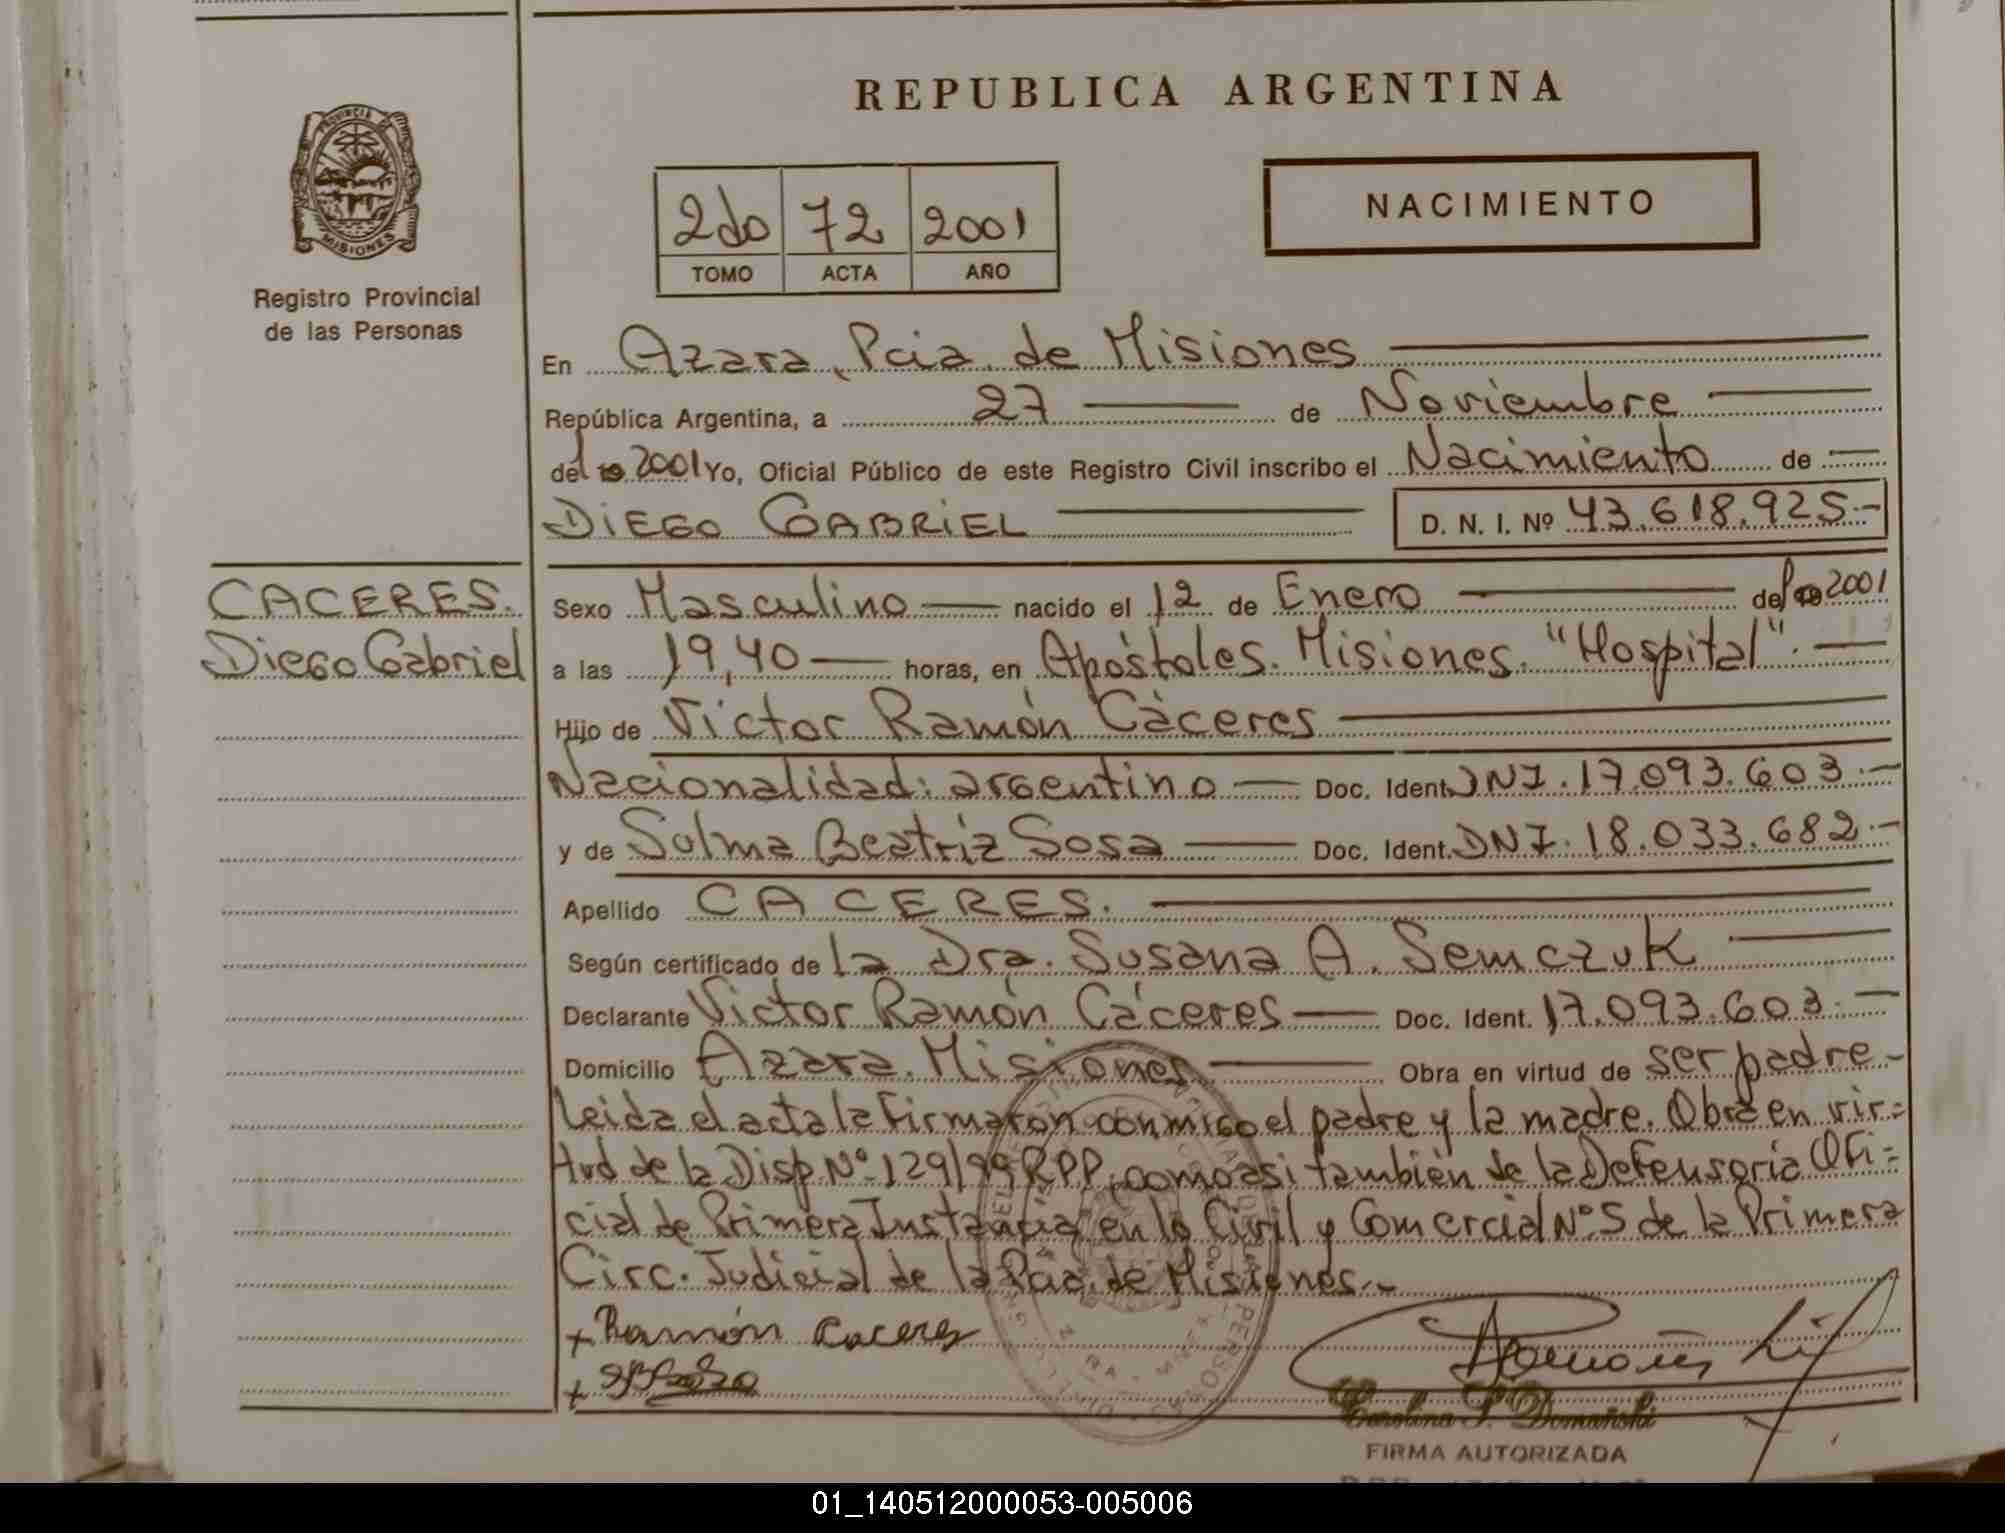 REPUBLICA ARGENTINA
PROVINCIA DE
MISIONES
Registro Provincial
de las Personas
2do 72 2001
TOMO ACTA AÑO
NACIMIENTO
En Azara, Pcia. de Misiones
República Argentina, a 27 de Noviembre
del 2001 Yo, Oficial Público de este Registro Civil inscribo el Nacimiento de
DIEGO GABRIEL D. N. I. Nº 43.618.925.-
CACERES.
Diego Gabriel
Sexo Masculino nacido el 12 de Enero del 2001
a las 19,40 horas, en Apóstoles. Misiones. "Hospital".
Hijo de Victor Ramón Cáceres
Nacionalidad: argentino Doc. Ident. DNI. 17.093.603.-
y de Sulma Beatriz Sosa Doc. Ident. DNI. 18.033.682.-
Apellido CACERES.
Según certificado de la Dra. Susana A. Semczuk
Declarante Victor Ramón Cáceres Doc. Ident. 17.093.603.-
Domicilio Azara. Misiones Obra en virtud de ser padre.-
Leida el acta la Firmaron conmigo el padre y la madre. Obra en vir=
tud de la Disp. Nº 129/99 RPP, como asi también de la Defensoria Ofi=
cial de Primera Instancia en lo Civil y Comercial Nº 5 de la Primera
Circ. Judicial de la Pcia. de Misiones.-
x Ramón Caceres
x
Carolina S. Domañski
FIRMA AUTORIZADA
01_140512000053-005006